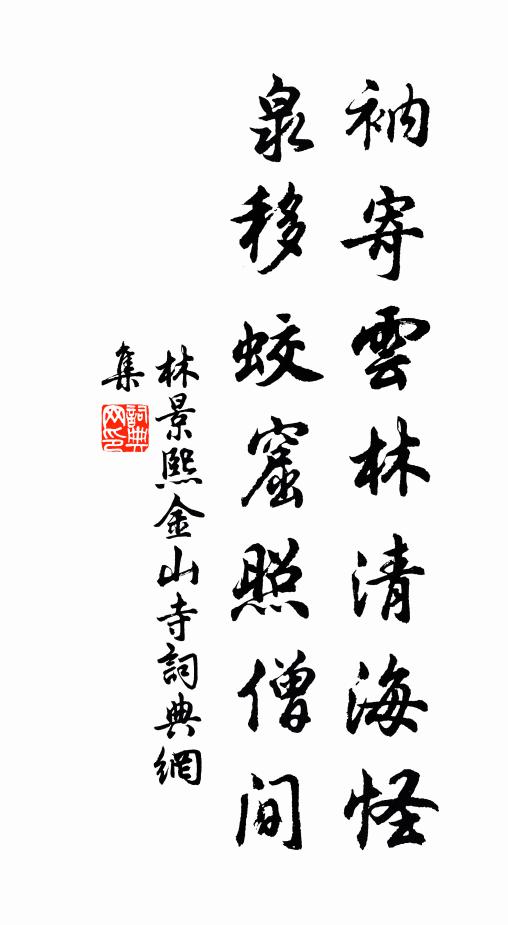 衲寄雲林清海怪
泉移蛟窟照僧間
林景熙金山寺詞典網
集
詞典
网印